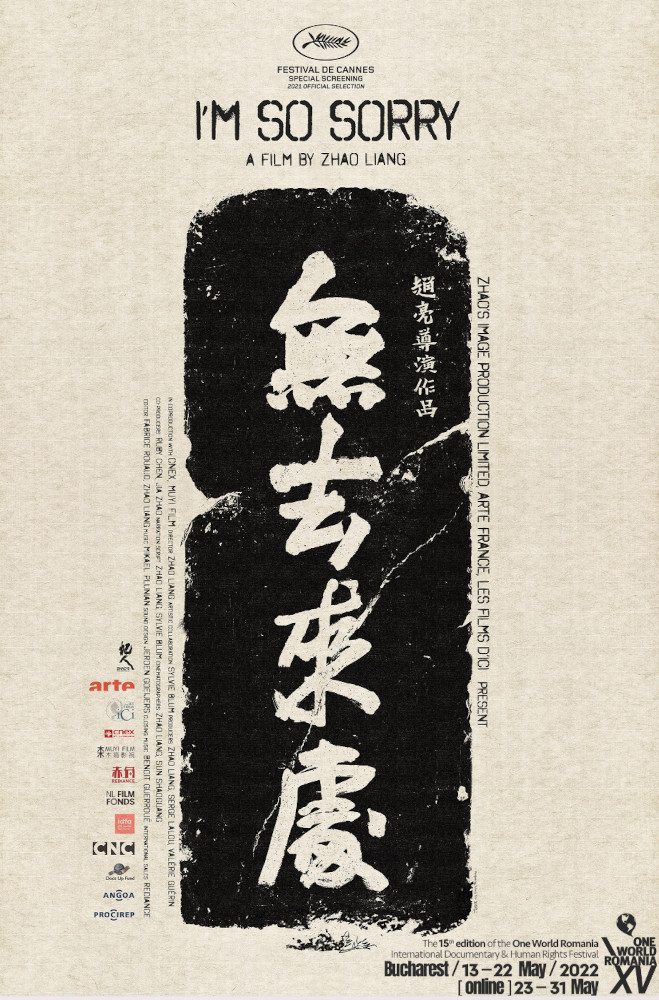 FESTIVAL DE CANNES
SPECIAL SCREENING
2021 OFFICIAL SELECTION
I'M SO SORRY
A FILM BY ZHAO LIANG
ZHAO'S IMAGE PRODUCTION LIMITED, ARTE FRANCE, LES FILMS D'ICI PRESENT
趙亮導演作品
無去來處
IN COPRODUCTION WITH CNEX, MUYI FILM DIRECTOR ZHAO LIANG ARTISTIC COLLABORATION SYLVIE BLUM PRODUCERS ZHAO LIANG, SERGE LALOU, VALÉRIE GUÉRIN
CO-PRODUCERS RUBY CHEN, JIA ZHAO NARRATION SCRIPT ZHAO LIANG, SYLVIE BLUM CINEMATOGRAPHERS ZHAO LIANG, SUN SHAOGUANG
EDITOR FABRICE ROUAUD, ZHAO LIANG MUSIC MIKAEL PLUNIAN SOUND DESIGN JEROEN GOEIJERS CLOSING MUSIC BENOIT GUERROUÉ INTERNATIONAL SALES REDIANCE
arte
cnex
MUYI FILM
木木易影視
REDIANCE
NL FILM
FONDS
idfa
CNC
Docs Up Fund
ANGOA
PROCIREP
The 15th edition of the One World Romania
International Documentary & Human Rights Festival
Bucharest / 13 – 22 May / 2022
[ online ] 23 – 31 May
ONE
WORLD
ROMANIA
XV